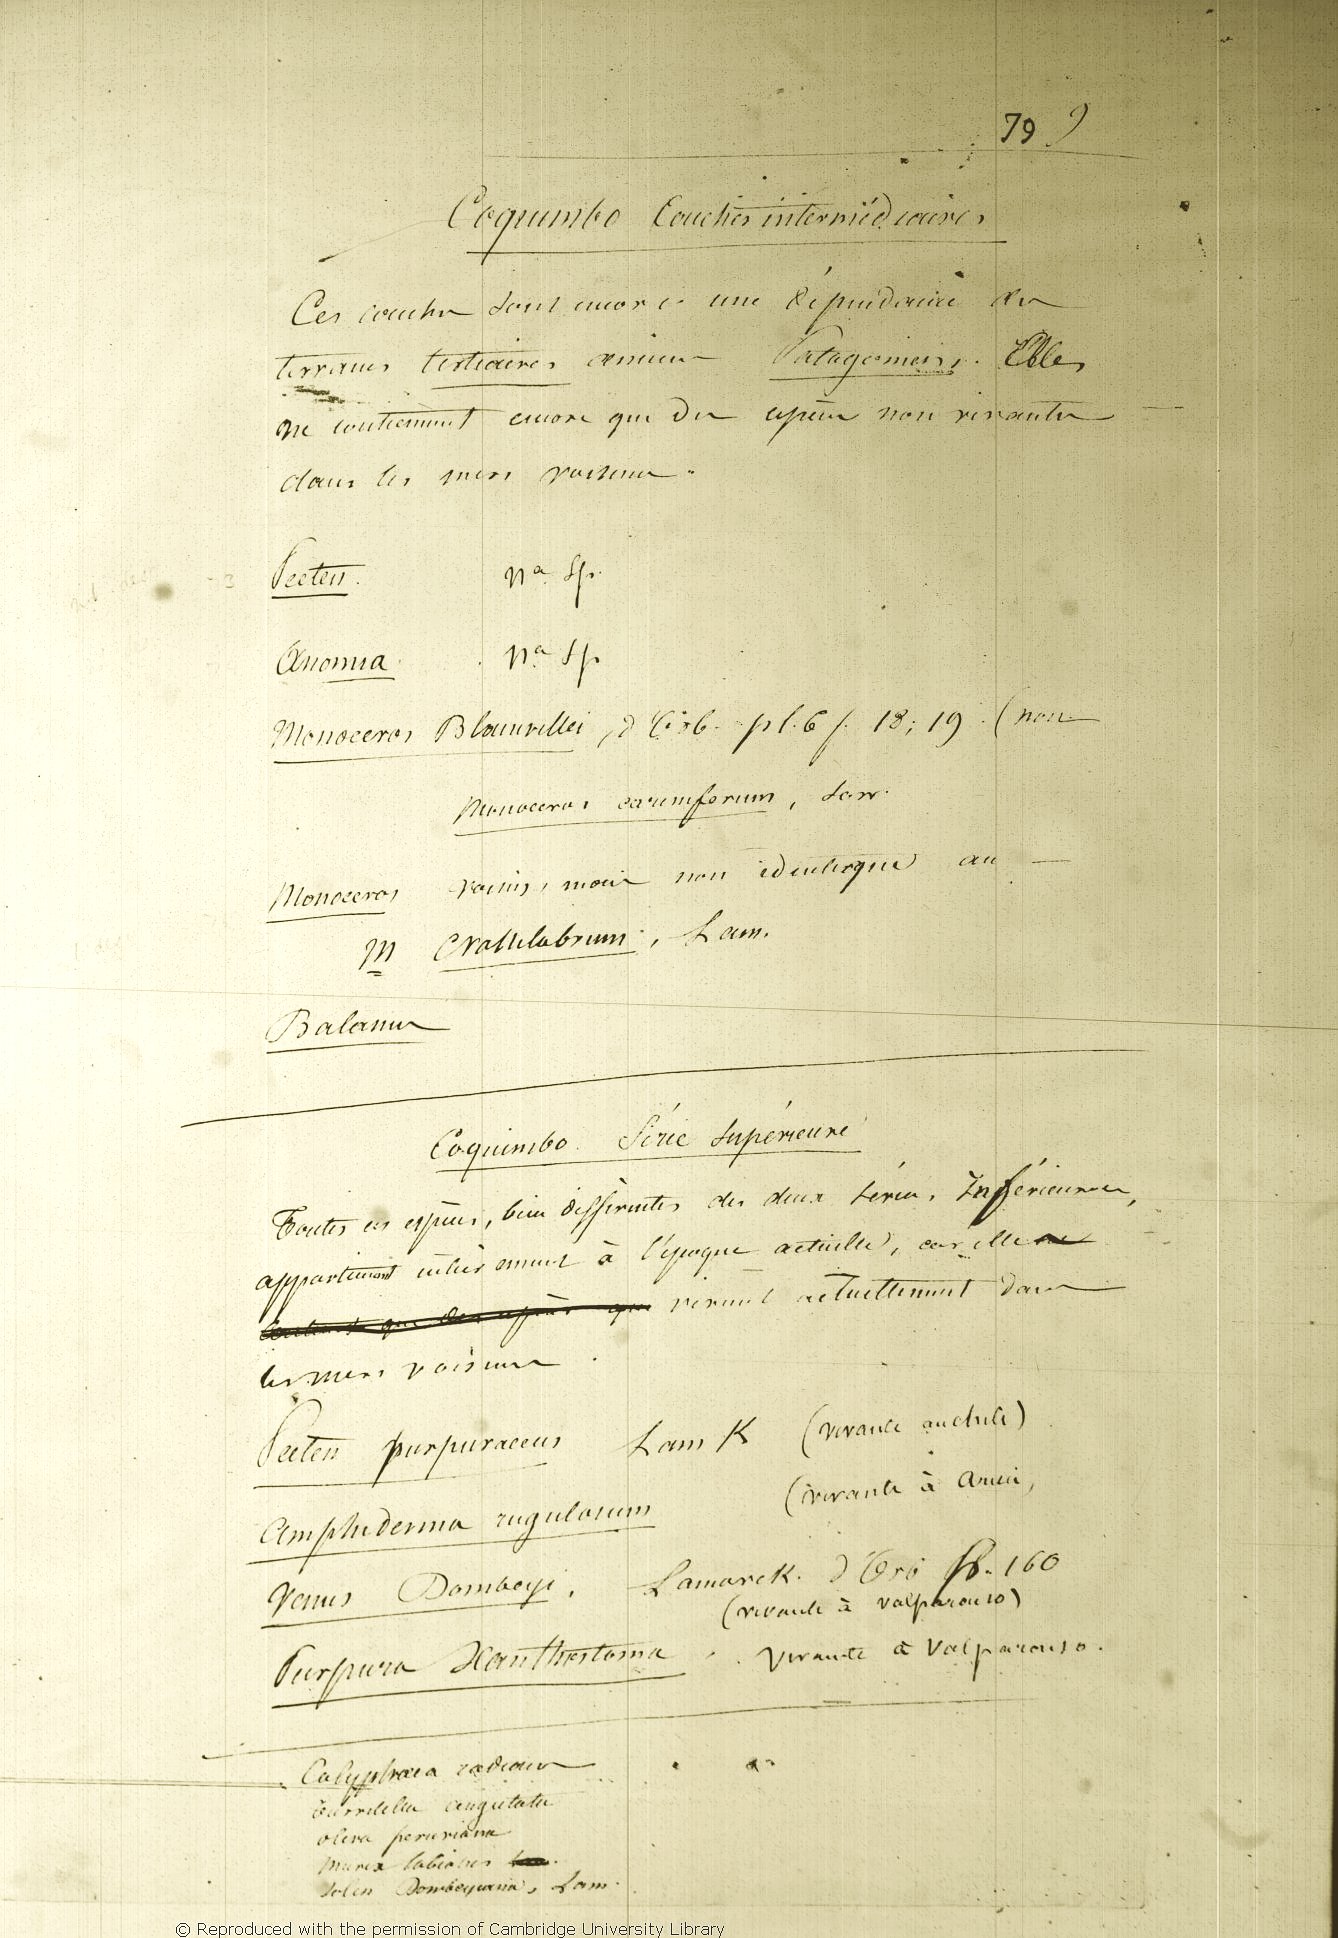 79 9
Coquimbo Couches intermédiaires
Ces couches sont encore une dépendance des
terrains tertiaires anciens Patagoniens. Elles
ne contiennent encore que des espèces non vivantes
dans les mers voisines.
Pecten. Na Sp.
Anomia Na Sp
Monoceros Blainvillei, d'Orb. pl. 6 f. 18; 19. (non
Monoceros , Sow.
Monoceros voisin, mais non identique au
M crassilabrum, Lam.
Balanus
Coquimbo. Série supérieure
Toutes ces espèces, bien différentes des deux séries Inférieures,
appartiennent entièrement à l'époque actuelle, car elles
vivent actuellement dans
les mers voisines.
Pecten purpuraceus LamK (vivante au chili)
Amphiderma rugulosum (vivante à Arica,
Venus Dombeyi, Lamarck. d'Orb. 160
(vivante à valparaiso)
Purpura Xanthostoma. vivante à Valparaiso.
Calyptraea radians
Turritella cingulata
oliva peruviana
Murex labiosus
Solen Dombeyana, Lam.
© Reproduced with the permission of Cambridge University Library